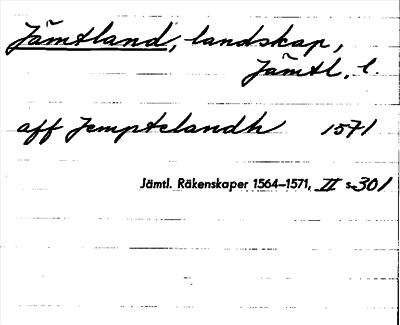 Jämtland, landskap,
Jämtl. l.
aff Jemptelandh 1571
Jämtl. Räkenskaper 1564–1571, II s. 301